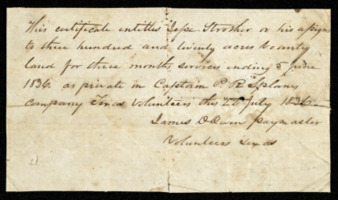 This certificate entitles Jesse Strother or his assigns
to three hundred and twenty acres bounty
land for three months services ending 5 June
1836 as private in Captain P. R. Splanes
company Texas Volunteers this 22 July 1836
James D Owen paymaster
Volunteers Texas